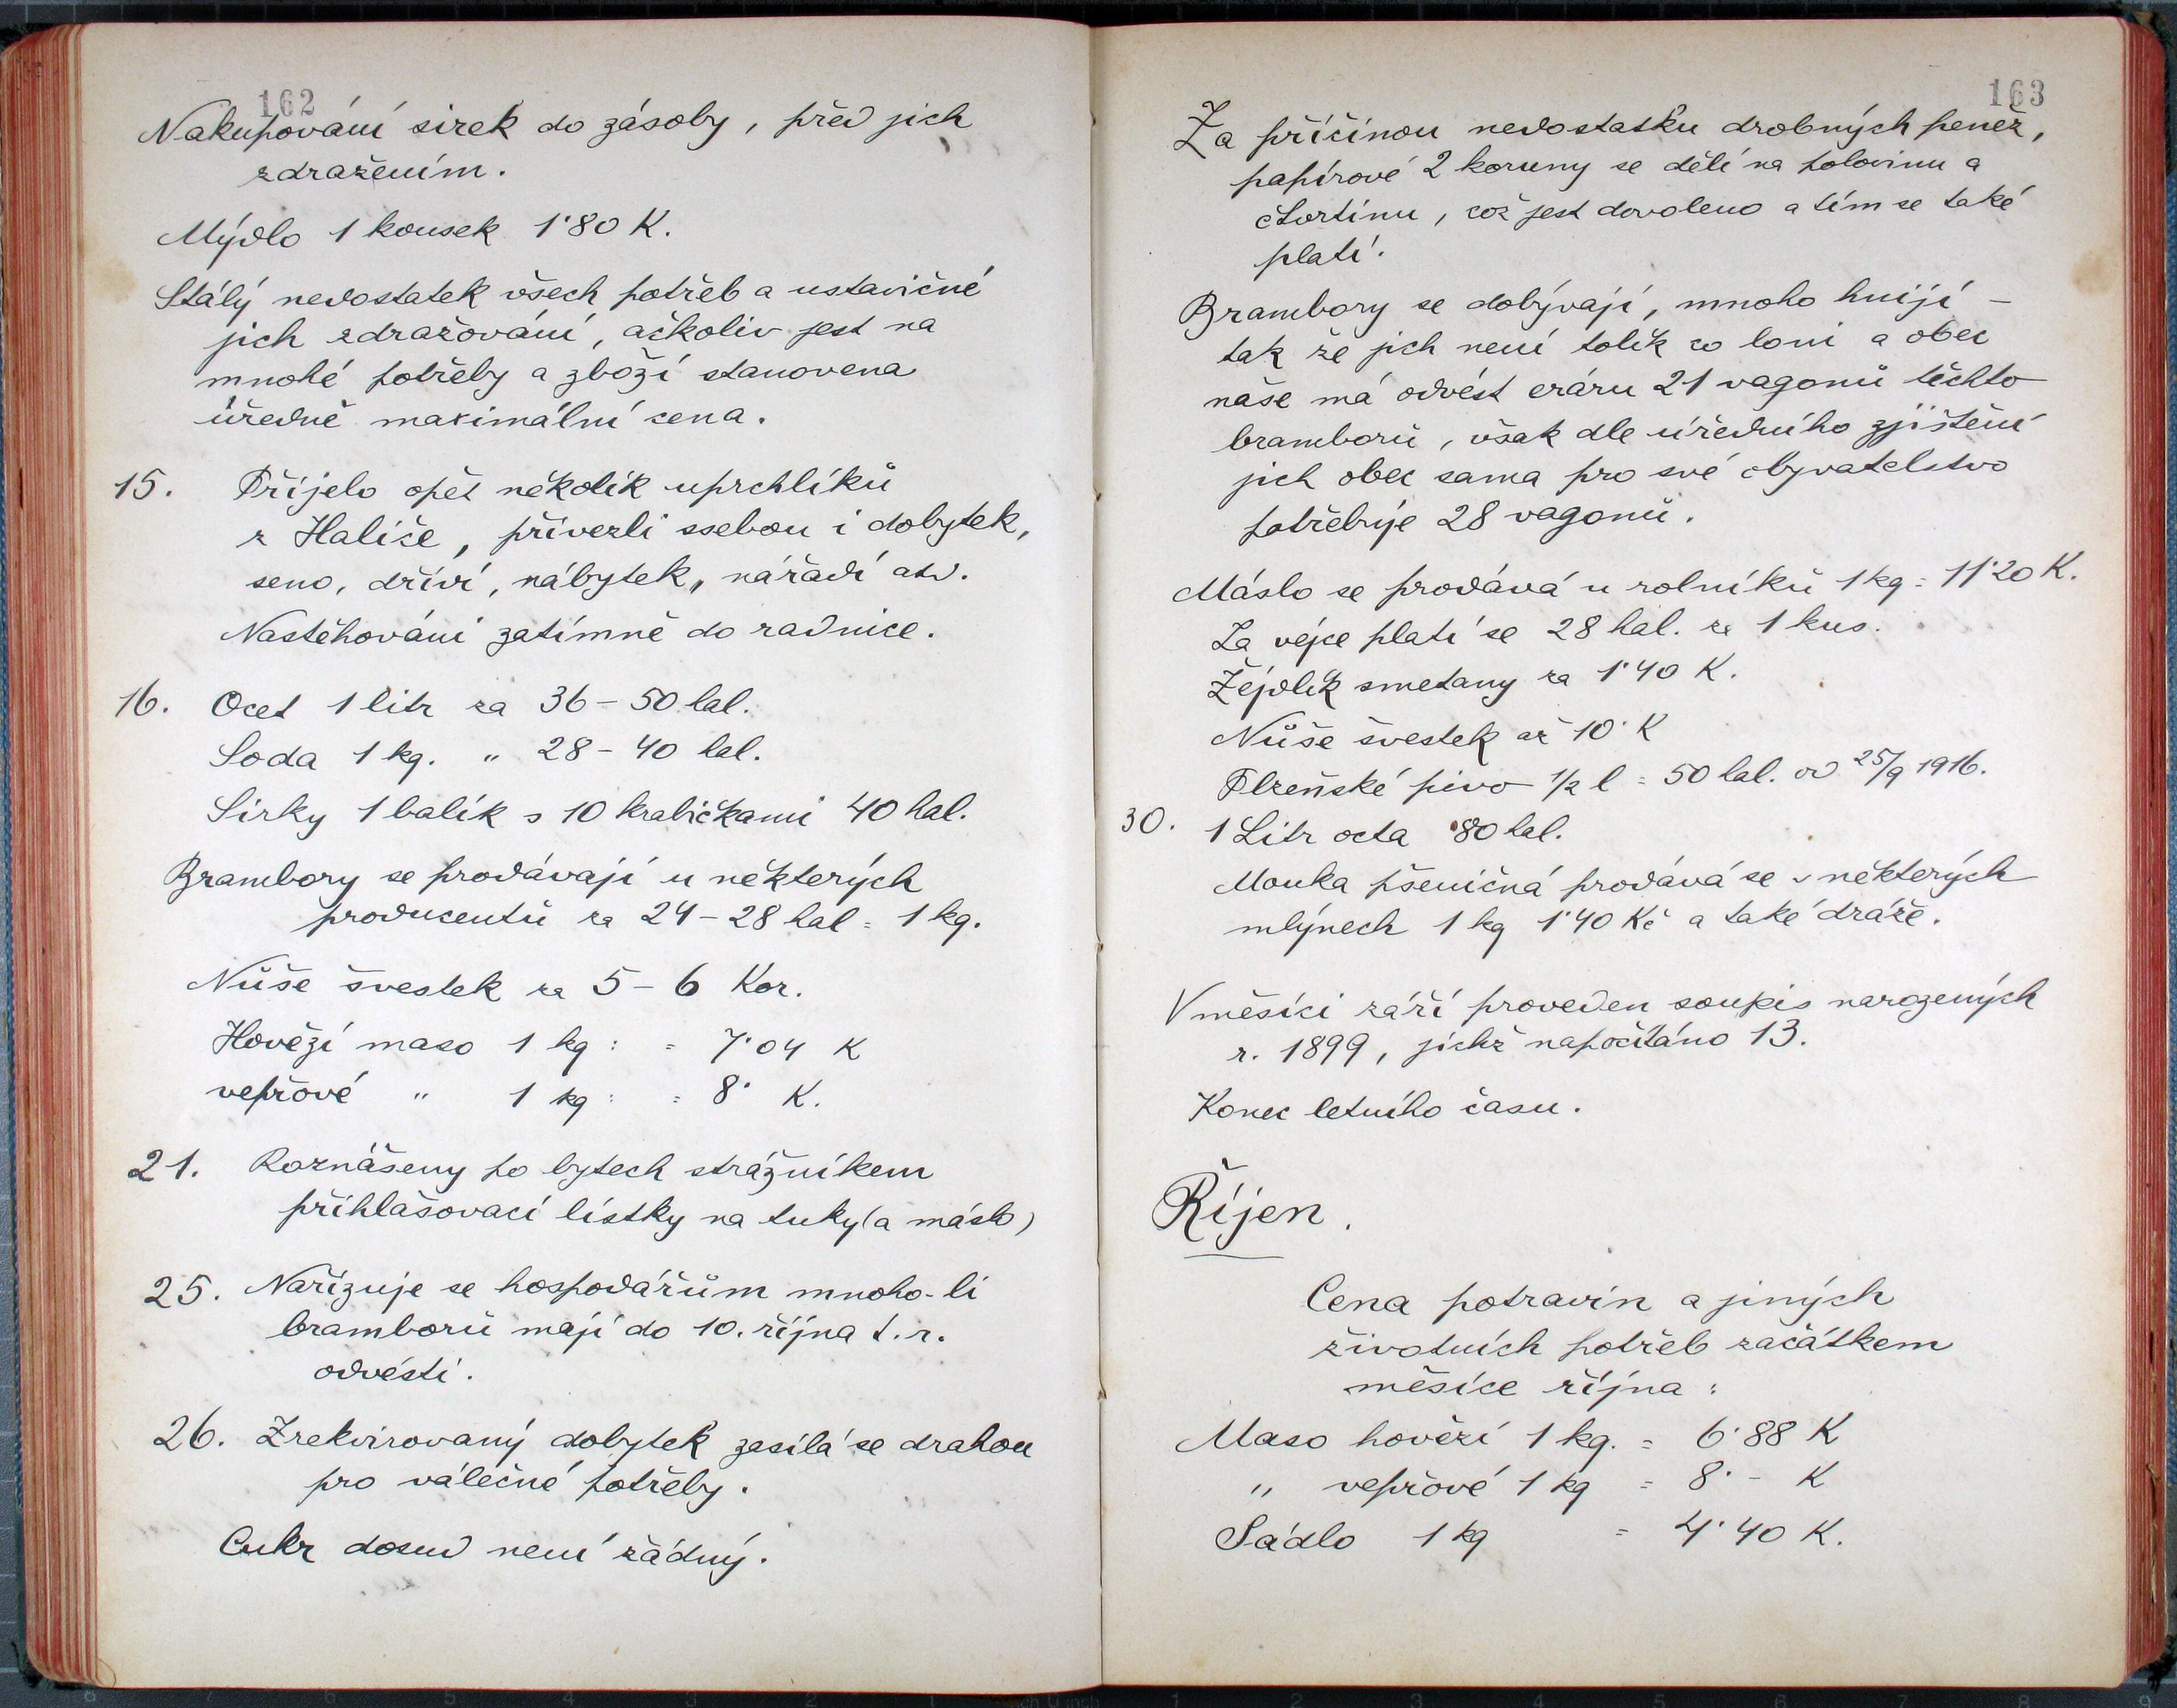 162
Nakupování sirek do zásoby, před jich
zdražením.
Mýdlo 1 kousek 1·80 K.
Stálý nedostatek všech potřeb a ustavičné
jich zdražování, ačkoliv jest na
mnohé potřeby a zboží stanovena
úředně maximální cena.
15. Přijelo opět několik uprchlíků
z Haliče, přivezli ssebou i dobytek,
seno, dříví, nábytek, nářadí atd.
Nastěhováni zatímně do radnice.
16. Ocet 1 litr za 36 – 50 hal.
Soda 1 kg. " 28 – 40 hal.
Sirky 1 balík s 10 krabičkami 40 hal.
Brambory se prodávají u některých
producentů za 24 – 28 hal = 1 kg.
Nůše švestek za 5 – 6 Kor.
Hovězí maso 1 kg : = 7·04 K
vepřové " 1 kg : = 8· K.
21. Roznášeny po bytech strážníkem
přihlašovací lístky na tuky (a máslo)
25. Nařizuje se hospodářům mnoho-li
bramborů mají do 10. října t. r.
odvésti.
26. Zrekvirovaný dobytek zasílá se drahou
pro válečné potřeby.
Cukr dosud není žádný.
163
Za příčinou nedostatku drobných peněz,
papírové 2 koruny se dělí na polovinu a
čtvrtinu, což jest dovoleno a tím se také
platí.
Brambory se dobývají, mnoho hnijí –
tak že jich není tolik co loni a obec
naše má odvést eráru 21 vagonů těchto
bramborů, však dle úředního zjištění
jich obec sama pro své obyvatelstvo
potřebuje 28 vagonů.
Máslo se prodává u rolníků 1 kg = 11·20 K.
Za vejce platí se 28 hal. za 1 kus.
Žejdlík smetany za 1·40 K.
Nůše švestek až 10· K
Plzeňské pivo 1/2 l = 50 hal. od 25/9 1916.
30. 1 Litr octa ·80 hal.
Mouka pšeničná prodává se v některých
mlýnech 1 kg 1·40 Kč a také dráže.
V měsíci září proveden soupis narozených
r. 1899, jichž napočítáno 13.
Konec letního času.
Říjen.
Cena potravin a jiných
životních potřeb začátkem
měsíce října:
Maso hovězí 1 kg. = 6·88 K
" vepřové 1 kg = 8· – K
Sádlo 1 kg = 4·40 K.